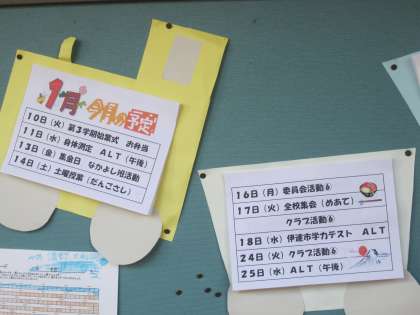 1月 今月の予定
10日（火）第3学期始業式　お弁当
11日（水）身体測定　ALT（午後）
13日（金）集金日　なかよし班活動
14日（土）土曜授業（だんごさし）
16日（月）委員会活動⑥
17日（火）全校集会（めあて）
クラブ活動⑥
18日（水）伊達市学力テスト　ALT
24日（火）クラブ活動⑥
25日（水）ALT（午後）